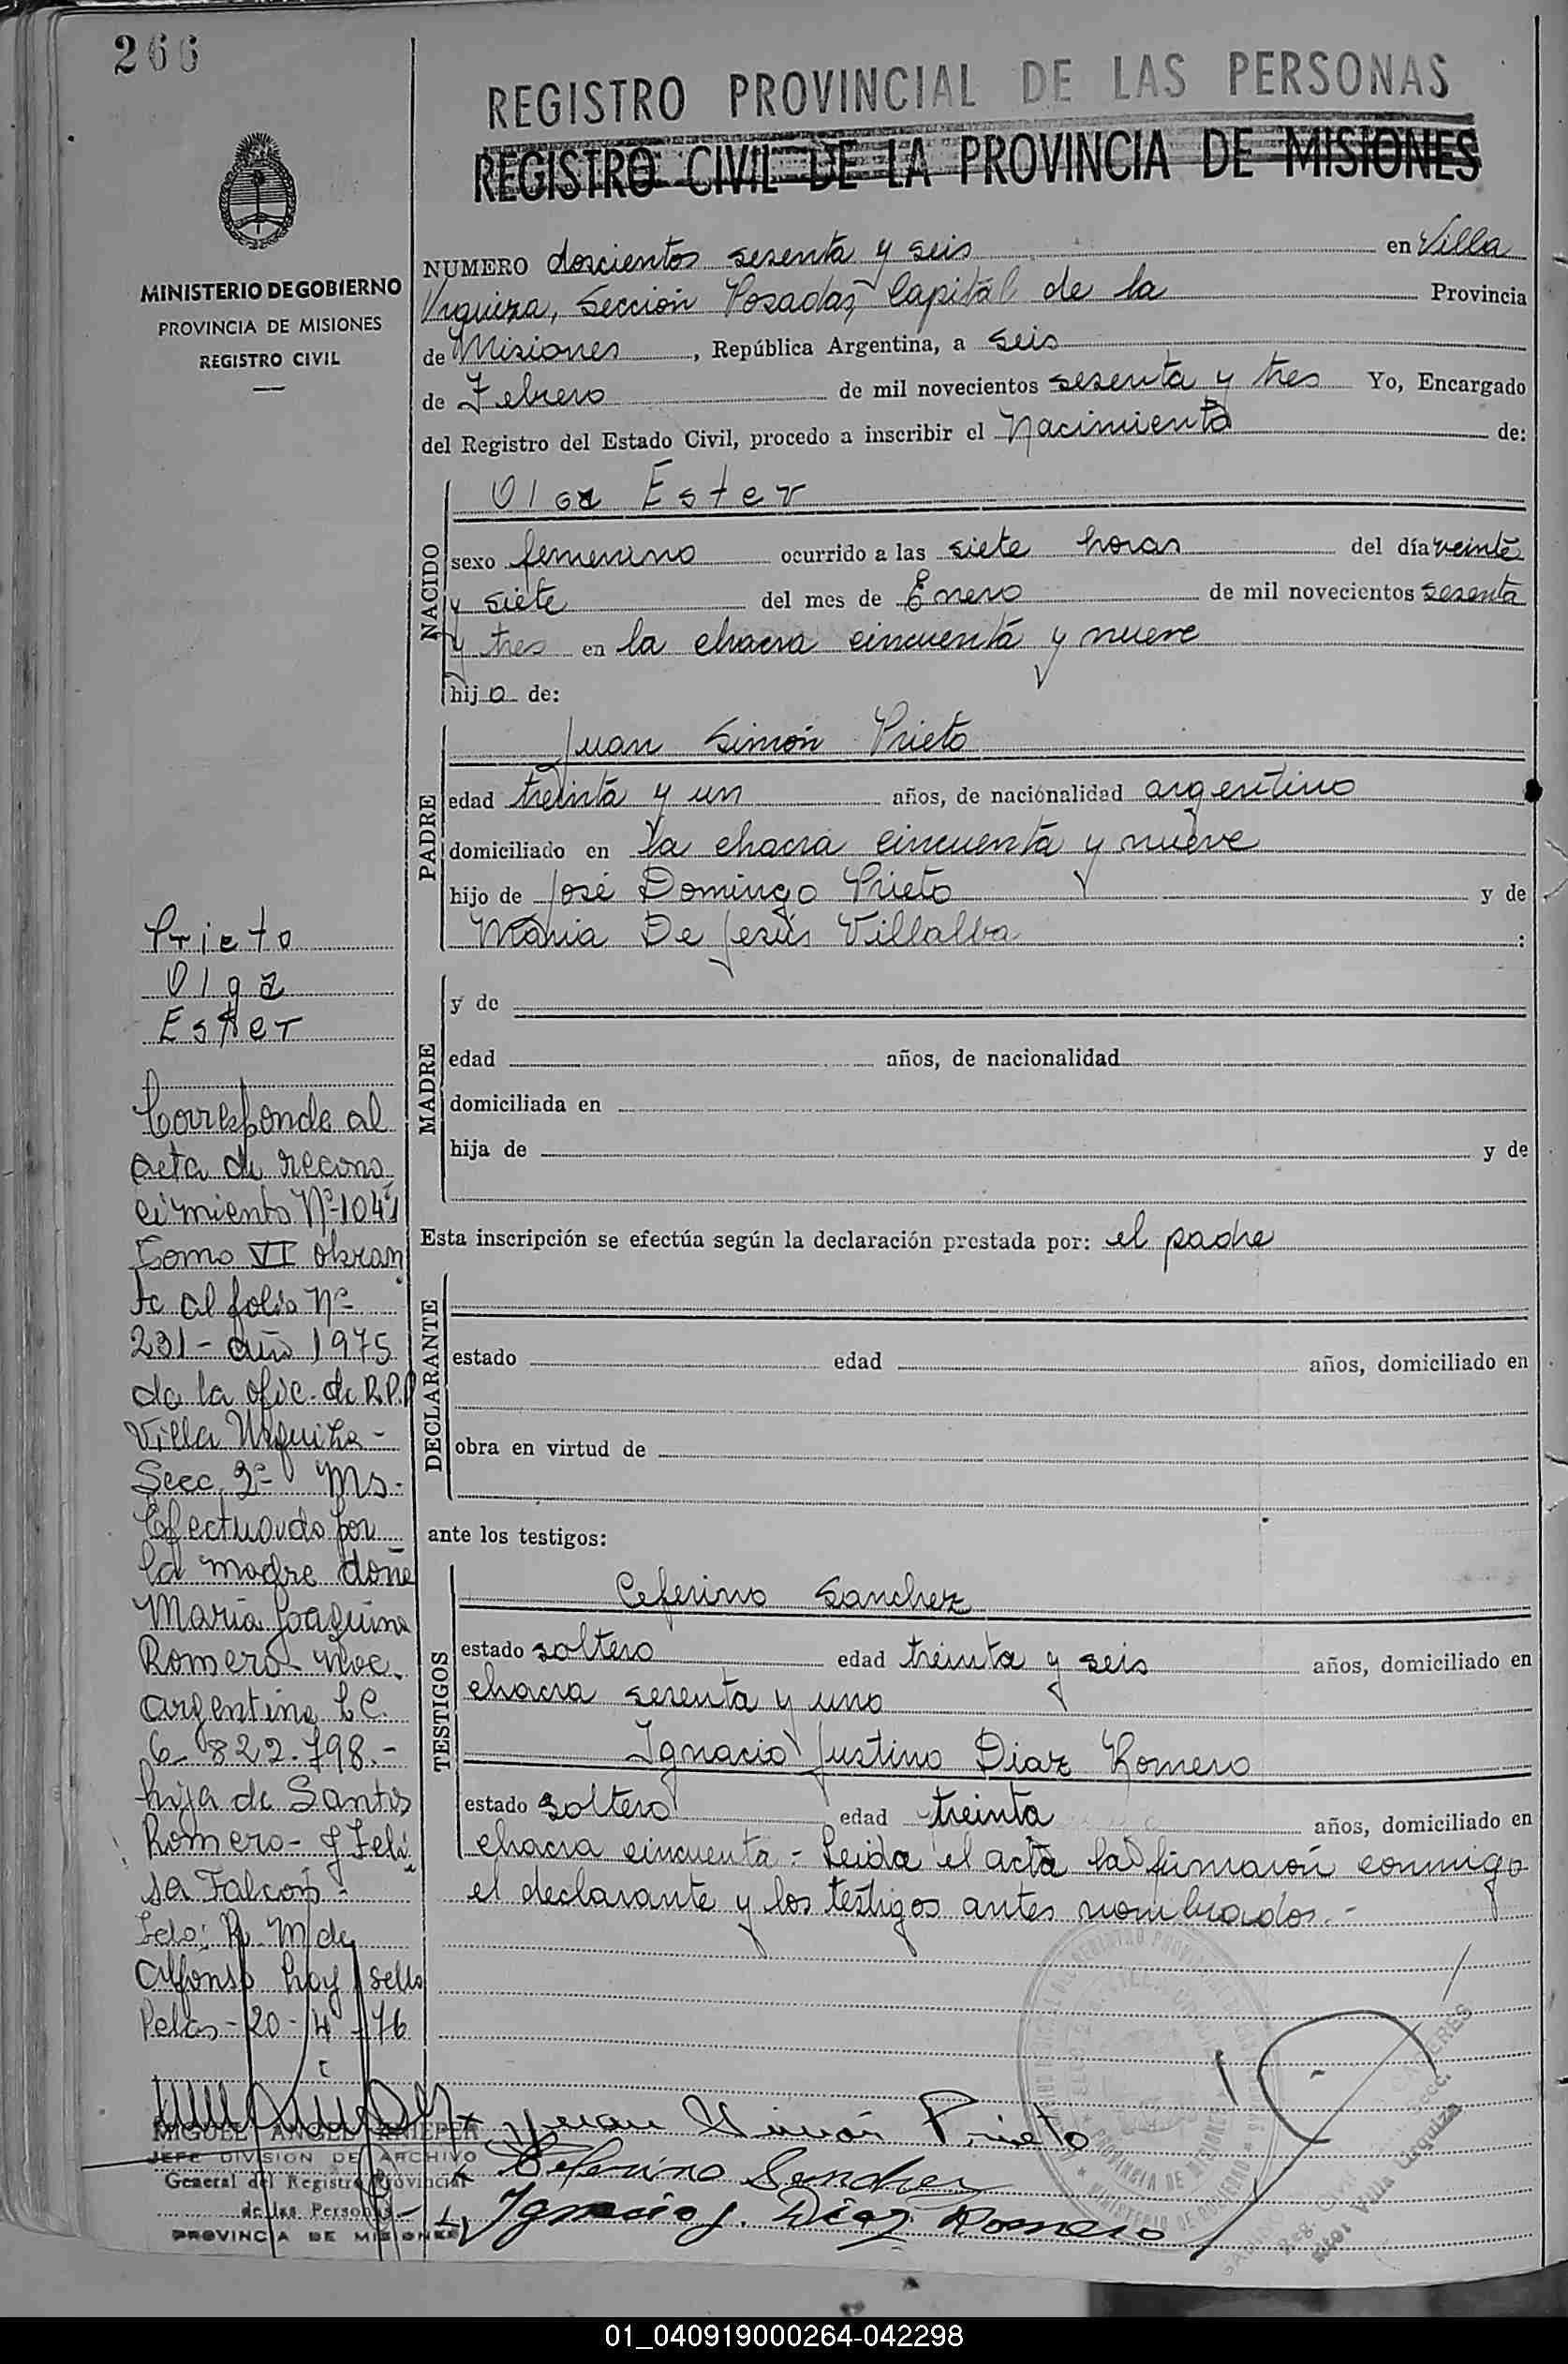 266
REGISTRO PROVINCIAL DE LAS PERSONAS
REGISTRO CIVIL DE LA PROVINCIA DE MISIONES
MINISTERIO DE GOBIERNO
PROVINCIA DE MISIONES
REGISTRO CIVIL
NUMERO doscientos sesenta y seis en Villa
Urquiza, Sección Posadas, Capital de la Provincia
de Misiones, República Argentina, a seis
de Febrero de mil novecientos sesenta y tres Yo, Encargado
del Registro del Estado Civil, procedo a inscribir el Nacimiento de:
NACIDO
Olga Ester
sexo femenino ocurrido a las siete horas del día veinte
y siete del mes de Enero de mil novecientos sesenta
y tres en la chacra cincuenta y nueve
hija de:
PADRE
Juan Simón Prieto
edad treinta y un años, de nacionalidad argentino
domiciliado en la chacra cincuenta y nueve
hijo de José Domingo Prieto y de
María De Jesús Villalba :
MADRE
y de
edad años, de nacionalidad
domiciliada en
hija de y de
Esta inscripción se efectúa según la declaración prestada por: el padre
DECLARANTE
estado edad años, domiciliado en
obra en virtud de
ante los testigos:
TESTIGOS
Ceferino Sanchez
estado soltero edad treinta y seis años, domiciliado en
chacra sesenta y uno
Ignacio Justino Diaz Romero
estado soltero edad treinta años, domiciliado en
chacra cincuenta - Leida el acta la firmaron conmigo
el declarante y los testigos antes nombrados.-
Prieto
Olga
Ester
Corresponde al
acta de recono
cimiento Nº 1041
Tomo VI obran
te al folio Nº
231- año 1975
de la ofic. de R.P.P
Villa Urquiza -
Secc. 2ª Ms.
Efectuado por
la madre doña
Maria Joaquina
Romero- nac.
argentina L.C.
6.822.798.-
hija de Santos
Romero- y Feli
sa Falcón-
Fdo: R. M de
Alfonso hay sello
Pdas- 20-4-76
MIGUEL ANGEL
JEFE DIVISION DE ARCHIVO
General del Registro Provincial
de las Personas
PROVINCIA DE MISIONES
Juan Simón Prieto
Ceferino Sanchez
Ignacio J. Diaz Romero
PROVINCIA DE MISIONES
MINISTERIO DE GOBIERNO
Villa Urquiza
01_040919000264-042298